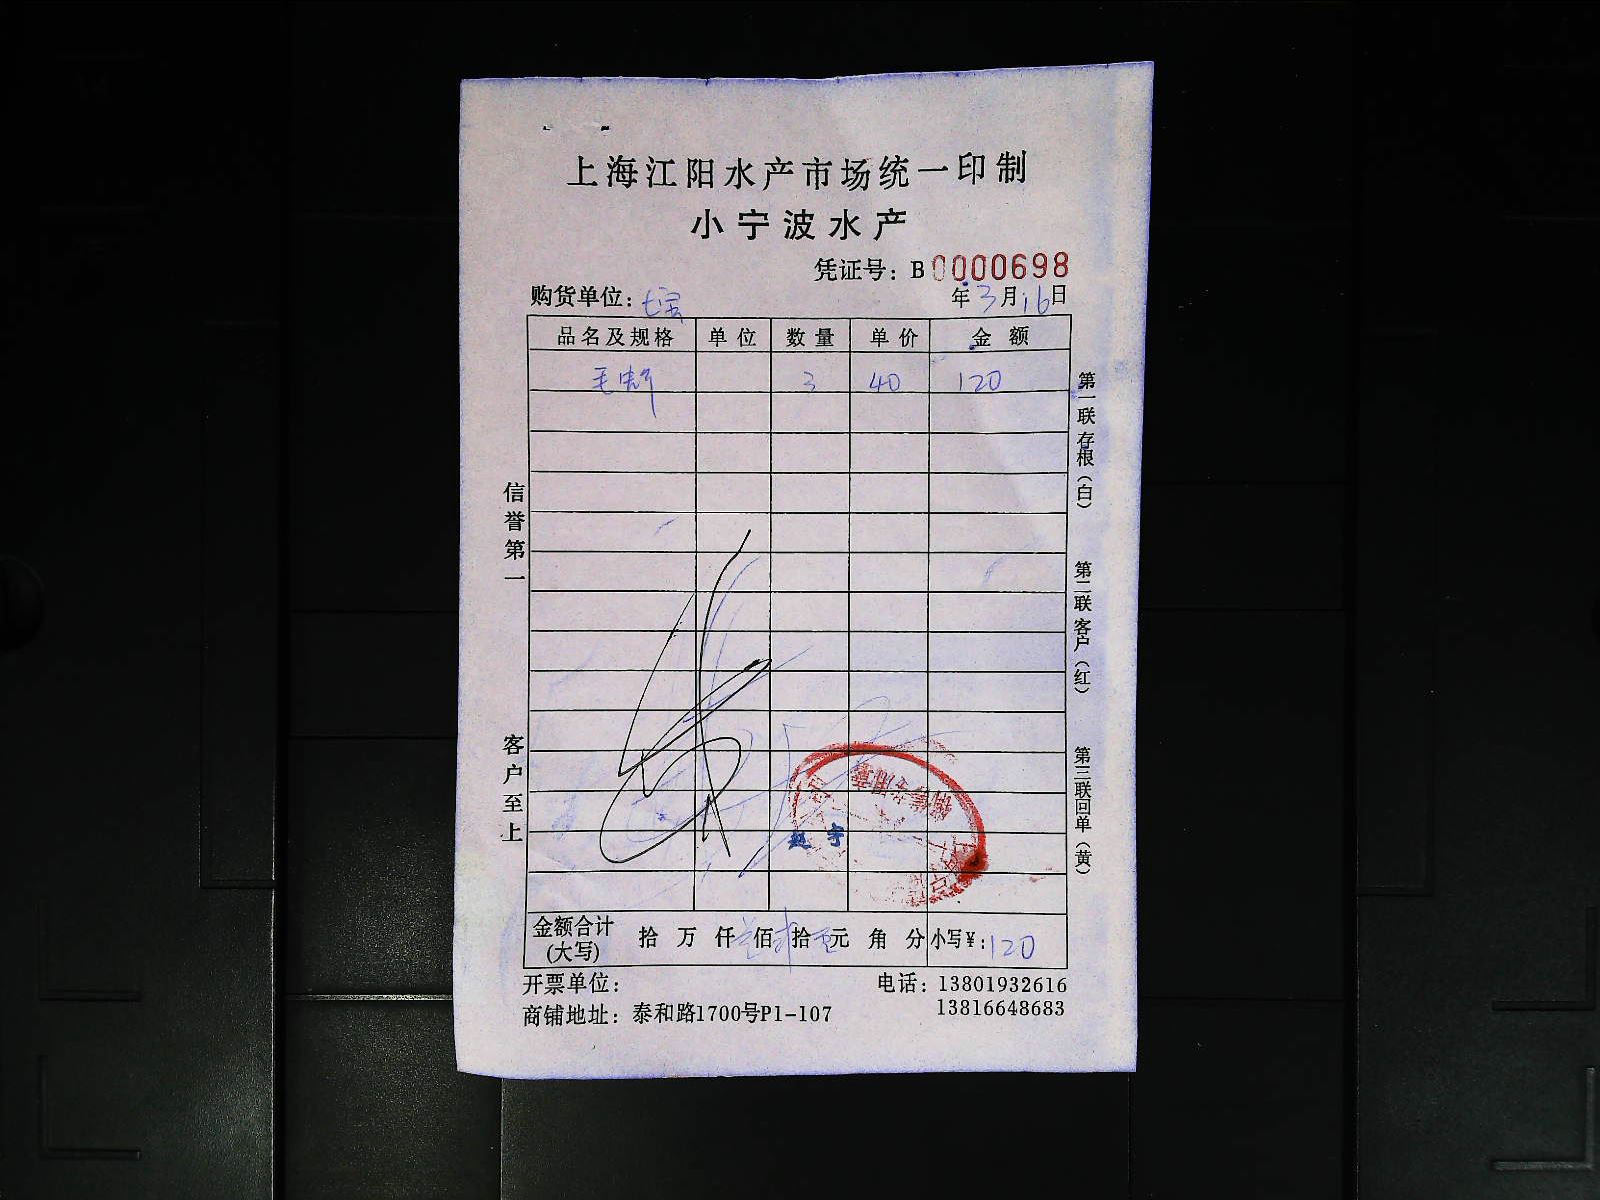 上海江阳水产市场统一印制
小宁波水产
凭证号：B0000698
购货单位：七宝 年3月16日
品名及规格 单位 数量 单价 金额
毛蚶 3 40 120
信誉第一
客户至上
第一联存根（白）
第二联客户（红）
第三联回单（黄）
赵宇
金额合计(大写) 拾 万 仟 佰 拾 元 角 分 小写¥:120
开票单位：
电话：13801932616
13816648683
商铺地址：泰和路1700号P1-107